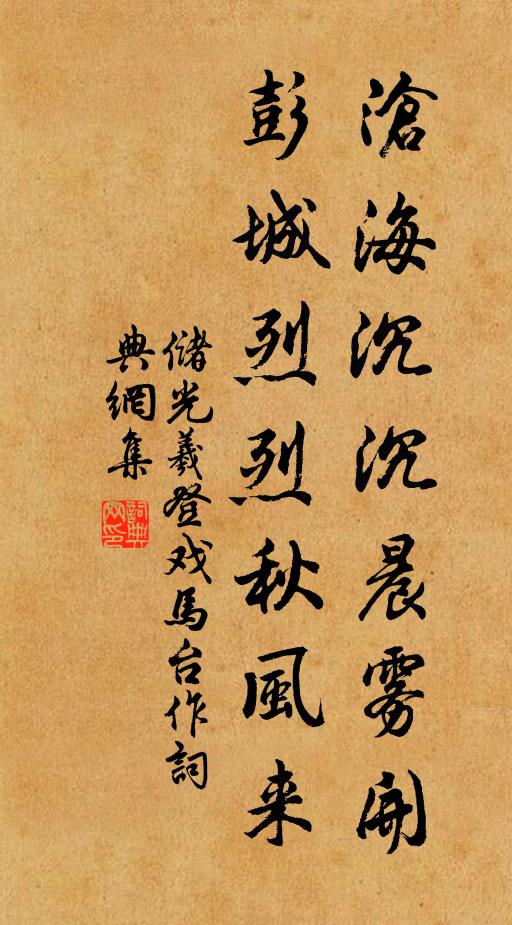 滄海沉沉晨霧開
彭城烈烈秋風来
儲光羲登戏馬台作詞
典網集
詞典
网印